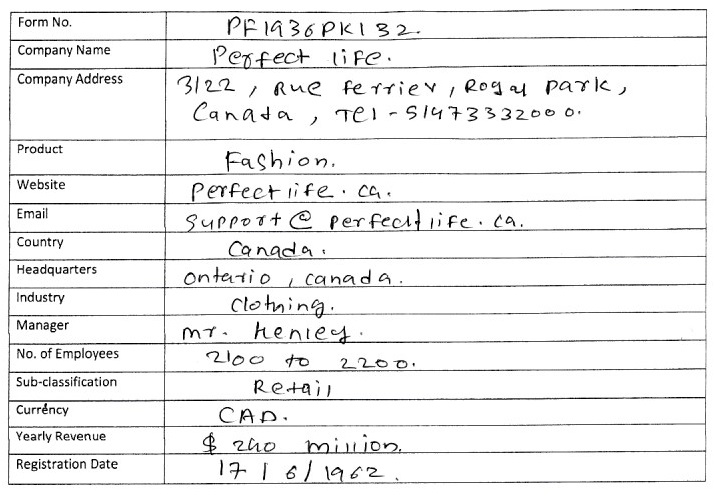 Form No. PF1936PK132.
Company Name Perfect life.
Company Address 3122, Rue ferrier, Royal park,
Canada, Tel - 5147333200 0.
Product Fashion.
Website Perfectlife.ca.
Email support@perfectlife.ca.
Country Canada.
Headquarters ontario, canada.
Industry Clothing.
Manager mr. Henley.
No. of Employees 2100 to 2200.
Sub-classification Retail
Currency CAD.
Yearly Revenue $ 240 million.
Registration Date 17/6/1962.